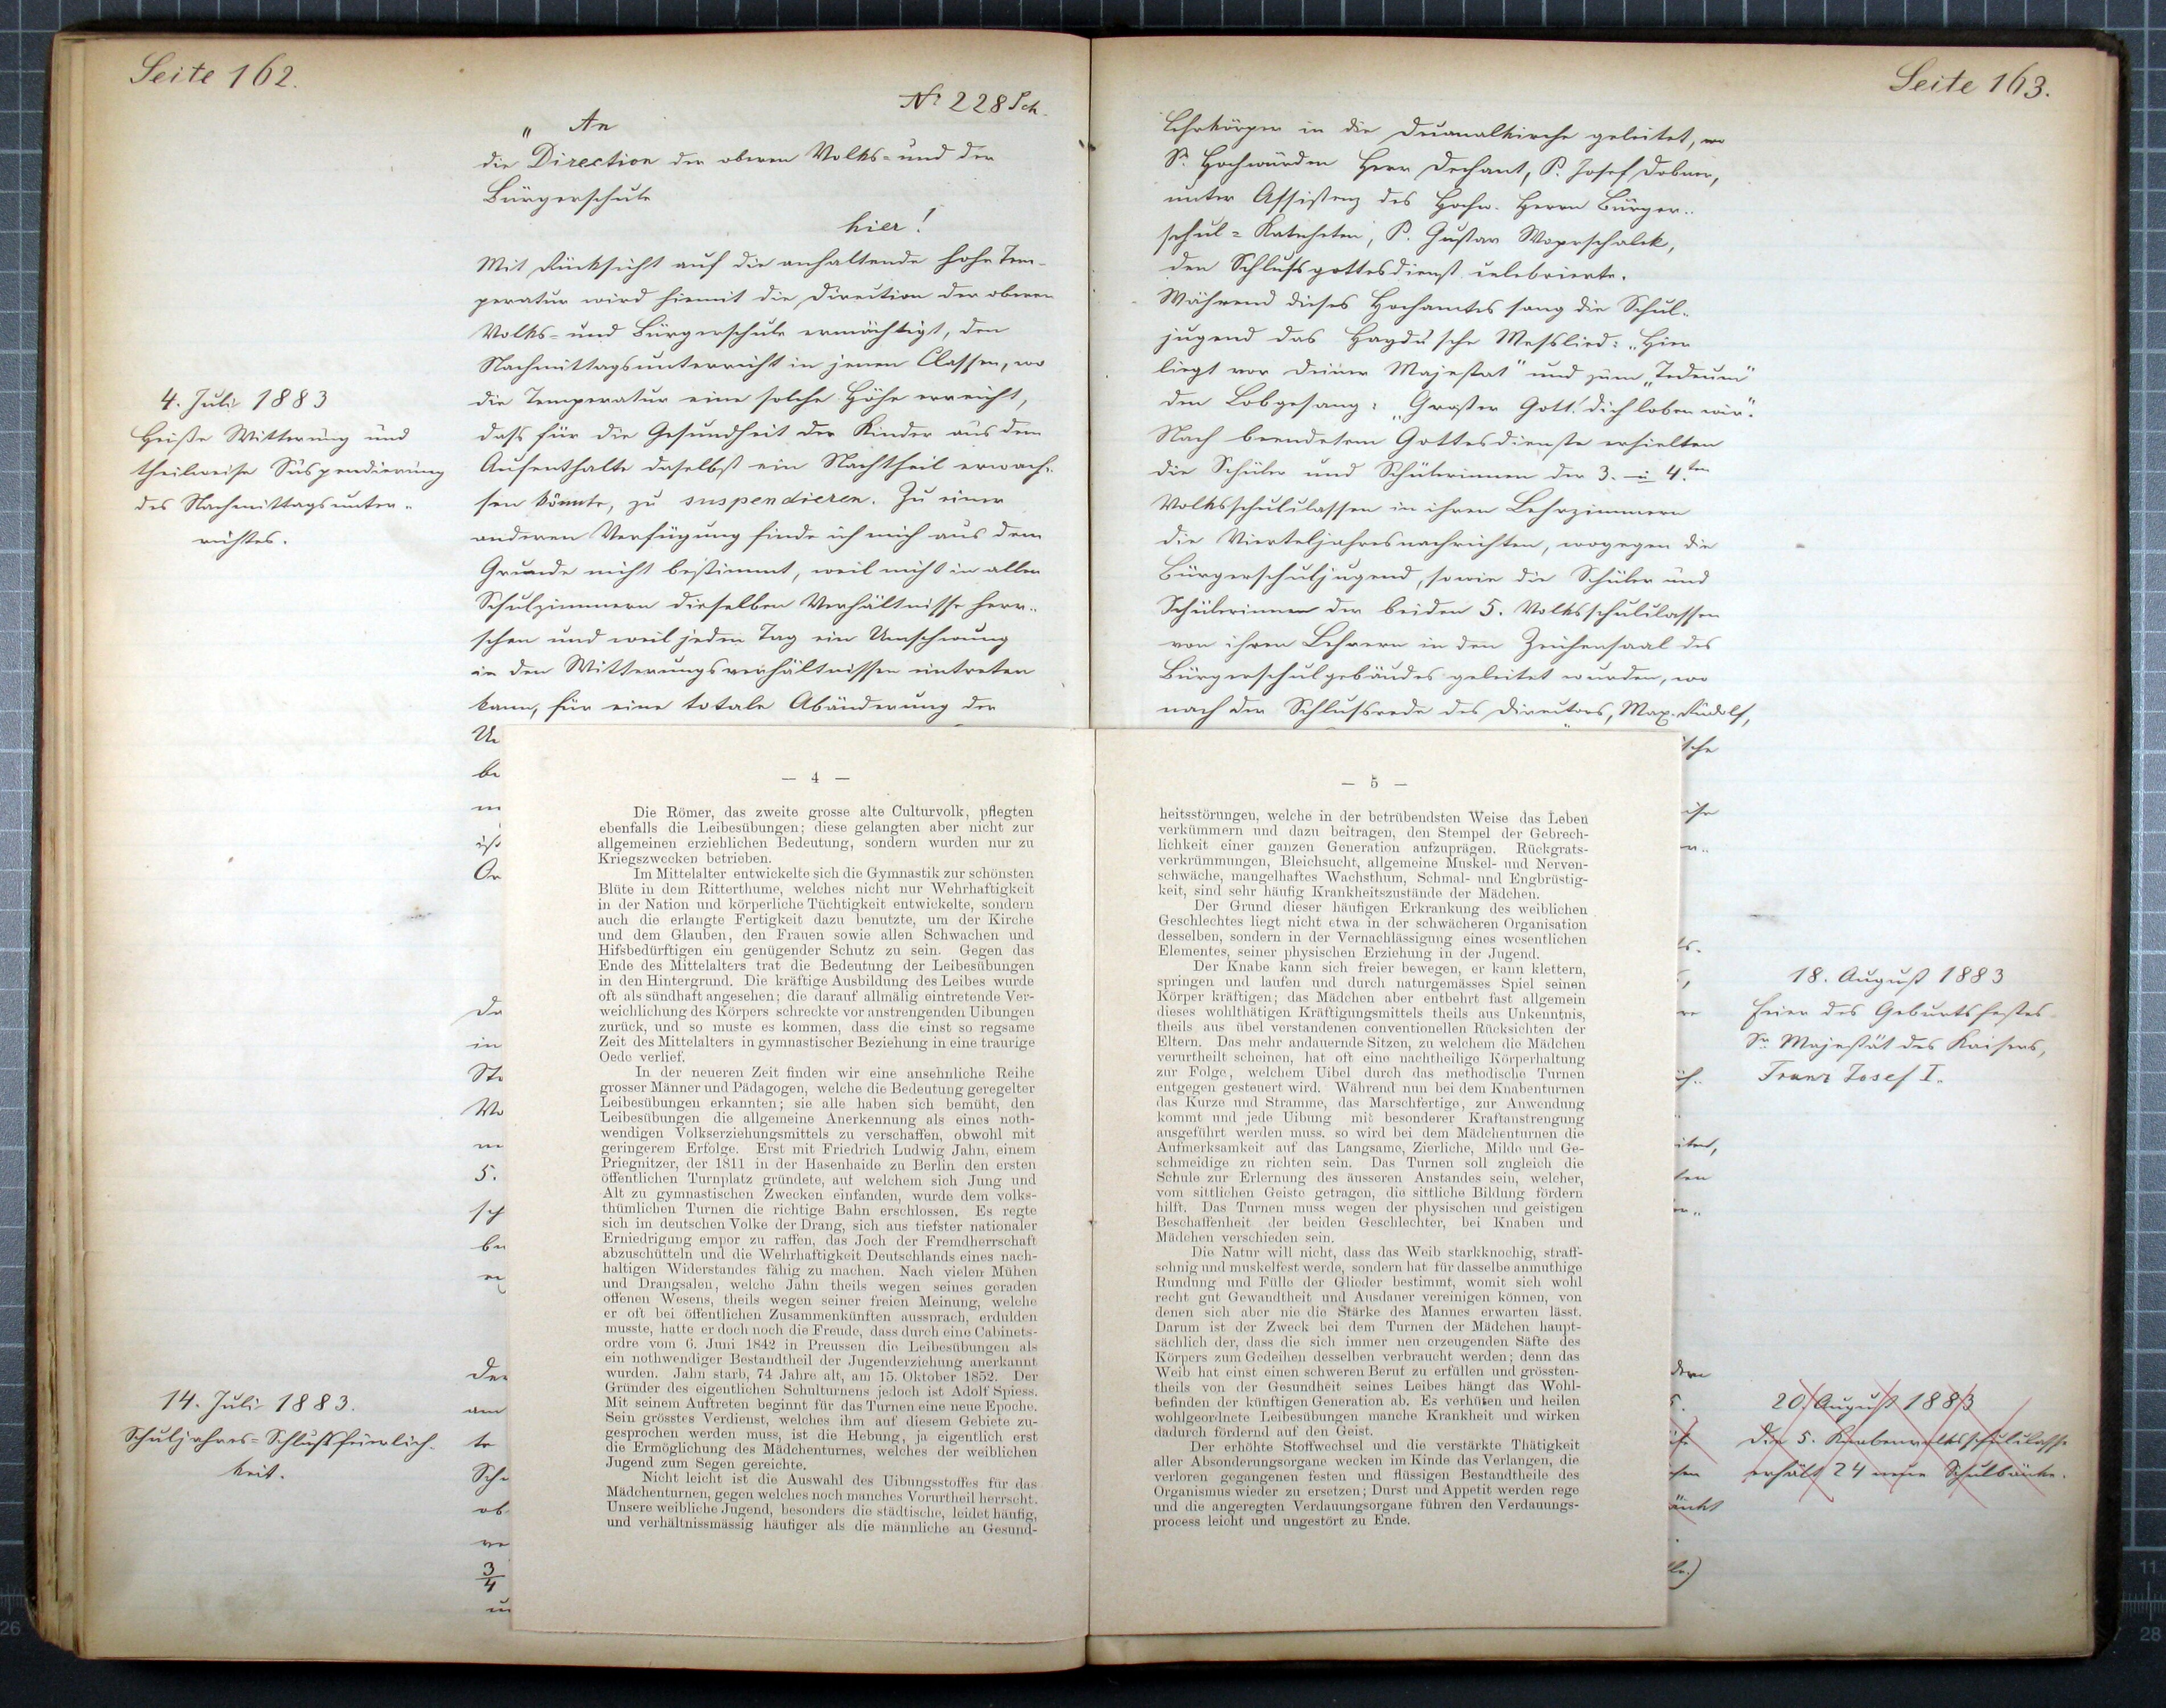 Seite 162.
No 228 Sch.
" An
die Direction der oberen Volks- und der
Bürgerschule
hier!
Mit Rücksicht auf die anhaltende hohe Tem-
peratur wird hiemit die Direction der oberen
Volks- und Bürgerschule ermächtigt, den
Nachmittagsunterricht in jenen Classen, wo
die Temperatur eine solche Höhe erreicht,
dass für die Gesundheit der Kinder aus dem
Aufenthalte daselbst ein Nachtheil erwach-
sen könnte, zu suspendieren. Zu einer
anderen Verfügung finde ich mich aus dem
Grunde nicht bestimmt, weil nicht in allen
Schulzimmern dieselben Verhältnisse herr-
schen und weil jeden Tag ein Umschwung
in den Witterungsverhältnissen eintreten
kann, für eine totale Abänderung der
4. Juli 1883
Heiße Witterung und
theilweise Suspendierung
des Nachmittagsunter-
richtes.
14. Juli 1883.
Schuljahres-Schlußfeierlich-
keit.
— 4 —
Die Römer, das zweite grosse alte Culturvolk, pflegten
ebenfalls die Leibesübungen; diese gelangten aber nicht zur
allgemeinen erziehlichen Bedeutung, sondern wurden nur zu
Kriegszwecken betrieben.
Im Mittelalter entwickelte sich die Gymnastik zur schönsten
Blüte in dem Ritterthume, welches nicht nur Wehrhaftigkeit
in der Nation und körperliche Tüchtigkeit entwickelte, sondern
auch die erlangte Fertigkeit dazu benutzte, um der Kirche
und dem Glauben, den Frauen sowie allen Schwachen und
Hifsbedürftigen ein genügender Schutz zu sein. Gegen das
Ende des Mittelalters trat die Bedeutung der Leibesübungen
in den Hintergrund. Die kräftige Ausbildung des Leibes wurde
oft als sündhaft angesehen; die darauf allmälig eintretende Ver-
weichlichung des Körpers schreckte vor anstrengenden Uibungen
zurück, und so muste es kommen, dass die einst so regsame
Zeit des Mittelalters in gymnastischer Beziehung in eine traurige
Oede verlief.
In der neueren Zeit finden wir eine ansehnliche Reihe
grosser Männer und Pädagogen, welche die Bedeutung geregelter
Leibesübungen erkannten; sie alle haben sich bemüht, den
Leibesübungen die allgemeine Anerkennung als eines noth-
wendigen Volkserziehungsmittels zu verschaffen, obwohl mit
geringerem Erfolge. Erst mit Friedrich Ludwig Jahn, einem
Priegnitzer, der 1811 in der Hasenhaide zu Berlin den ersten
öffentlichen Turnplatz gründete, auf welchem sich Jung und
Alt zu gymnastischen Zwecken einfanden, wurde dem volks-
thümlichen Turnen die richtige Bahn erschlossen. Es regte
sich im deutschen Volke der Drang, sich aus tiefster nationaler
Erniedrigung empor zu raffen, das Joch der Fremdherrschaft
abzuschütteln und die Wehrhaftigkeit Deutschlands eines nach-
haltigen Widerstandes fähig zu machen. Nach vielen Mühen
und Drangsalen, welche Jahn theils wegen seines geraden
offenen Wesens, theils wegen seiner freien Meinung, welche
er oft bei öffentlichen Zusammenkünften aussprach, erdulden
musste, hatte er doch noch die Freude, dass durch eine Cabinets-
ordre vom 6. Juni 1842 in Preussen die Leibesübungen als
ein nothwendiger Bestandtheil der Jugenderziehung anerkannt
wurden. Jahn starb, 74 Jahre alt, am 15. Oktober 1852. Der
Gründer des eigentlichen Schulturnens jedoch ist Adolf Spiess.
Mit seinem Auftreten beginnt für das Turnen eine neue Epoche.
Sein grösstes Verdienst, welches ihm auf diesem Gebiete zu-
gesprochen werden muss, ist die Hebung, ja eigentlich erst
die Ermöglichung des Mädchenturnes, welches der weiblichen
Jugend zum Segen gereichte.
Nicht leicht ist die Auswahl des Uibungsstoffes für das
Mädchenturnen, gegen welches noch manches Vorurtheil herrscht.
Unsere weibliche Jugend, besonders die städtische, leidet häufig,
und verhältnissmässig häufiger als die männliche an Gesund-
Seite 163.
Lehrkörper in die Decanalkirche geleitet, wo
Sr. Hochwürden Herr Dechant, P. Josef Dobner,
unter Assistenz des Hochw. Herrn Bürger-
schul-Katecheten, P. Gustav Woprschalek,
den Schlussgottesdienst celebrierte.
Während dieses Hochamtes sang die Schul-
jugend das Haydn'sche Messlied: „Hier
liegt vor deiner Majestät" und zum „Tedeum"
den Lobgesang: „Großer Gott! dich loben wir".
Nach beendetem Gottesdienste erhielten
die Schüler und Schülerinnen der 3. u 4. ten
Volksschulclassen in ihren Lehrzimmern
die Vierteljahresnachrichten, wogegen die
Bürgerschuljugend, sowie die Schüler und
Schülerinnen der beiden 5. Volksschulclassen
von ihren Lehrern in den Zeichensaal des
Bürgerschulgebäudes geleitet wurden, wo
nach der Schlussrede des Directors, Max. Rudolf,
18. August 1883
Feier des Geburtsfestes
Sr. Majestät des Kaisers,
Franz Josef I.
20. August 1883
Die 5. Knabenvolksschulclasse
erhält 24 neue Schulbänke.
— 5 —
heitsstörungen, welche in der betrübendsten Weise das Leben
verkümmern und dazu beitragen, den Stempel der Gebrech-
lichkeit einer ganzen Generation aufzuprägen. Rückgrats-
verkrümmungen, Bleichsucht, allgemeine Muskel- und Nerven-
schwäche, mangelhaftes Wachsthum, Schmal- und Engbrüstig-
keit, sind sehr häufig Krankheitszustände der Mädchen.
Der Grund dieser häufigen Erkrankung des weiblichen
Geschlechtes liegt nicht etwa in der schwächeren Organisation
desselben, sondern in der Vernachlässigung eines wesentlichen
Elementes, seiner physischen Erziehung in der Jugend.
Der Knabe kann sich freier bewegen, er kann klettern,
springen und laufen und durch naturgemässes Spiel seinen
Körper kräftigen; das Mädchen aber entbehrt fast allgemein
dieses wohlthätigen Kräftigungsmittels theils aus Unkenntnis,
theils aus übel verstandenen conventionellen Rücksichten der
Eltern. Das mehr andauernde Sitzen, zu welchem die Mädchen
verurtheilt scheinen, hat oft eine nachtheilige Körperhaltung
zur Folge, welchem Uibel durch das methodische Turnen
entgegen gesteuert wird. Während nun bei dem Knabenturnen
das Kurze und Stramme, das Marschfertige, zur Anwendung
kommt und jede Uibung mit besonderer Kraftanstrengung
ausgeführt werden muss. so wird bei dem Mädchenturnen die
Aufmerksamkeit auf das Langsame, Zierliche, Milde und Ge-
schmeidige zu richten sein. Das Turnen soll zugleich die
Schule zur Erlernung des äusseren Anstandes sein, welcher,
vom sittlichen Geiste getragen, die sittliche Bildung fördern
hilft. Das Turnen muss wegen der physischen und geistigen
Beschaffenheit der beiden Geschlechter, bei Knaben und
Mädchen verschieden sein.
Die Natur will nicht, dass das Weib starkknochig, straff-
sehnig und muskelfest werde, sondern hat für dasselbe anmuthige
Rundung und Fülle der Glieder bestimmt, womit sich wohl
recht gut Gewandtheit und Ausdauer vereinigen können, von
denen sich aber nie die Stärke des Mannes erwarten lässt.
Darum ist der Zweck bei dem Turnen der Mädchen haupt-
sächlich der, dass die sich immer neu erzeugenden Säfte des
Körpers zum Gedeihen desselben verbraucht werden; denn das
Weib hat einst einen schweren Beruf zu erfüllen und grössten-
theils von der Gesundheit seines Leibes hängt das Wohl-
befinden der künftigen Generation ab. Es verhüten und heilen
wohlgeordnete Leibesübungen manche Krankheit und wirken
dadurch fördernd auf den Geist.
Der erhöhte Stoffwechsel und die verstärkte Thätigkeit
aller Absonderungsorgane wecken im Kinde das Verlangen, die
verloren gegangenen festen und flüssigen Bestandtheile des
Organismus wieder zu ersetzen; Durst und Appetit werden rege
und die angeregten Verdauungsorgane führen den Verdauungs-
process leicht und ungestört zu Ende.